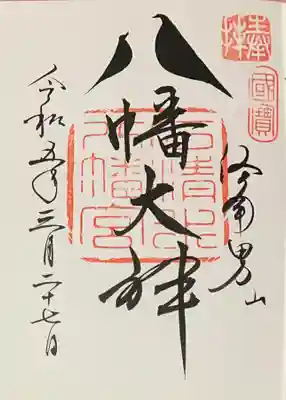 奉拝
國寶
洛南男山
八幡大神
石清水
八幡宮
令和五年三月二十七日